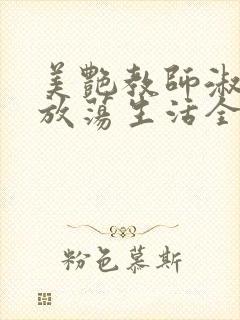 美艷教師淑
放蕩生活全
粉色慕斯